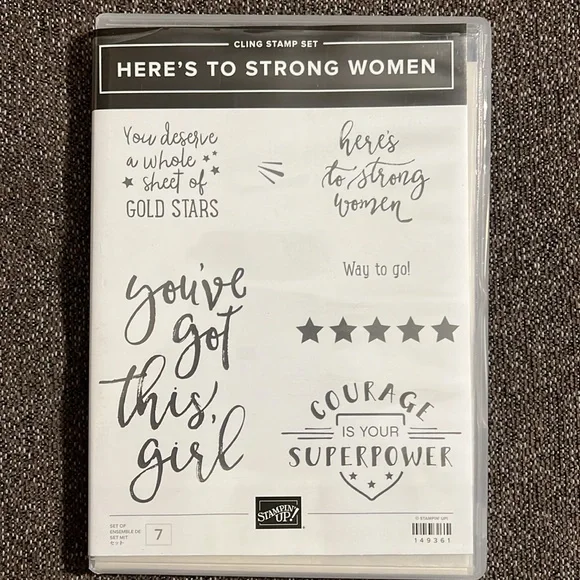 CLING STAMP SET
HERE'S TO STRONG WOMEN
You deserve
a whole
sheet of
GOLD STARS
here's
to strong
women
Way to go!
you've
got
this,
girl
COURAGE
IS YOUR
SUPERPOWER
STAMPIN' UP!
SET OF
ENSEMBLE DE
SET MIT
セット
7
© STAMPIN' UP!
149361